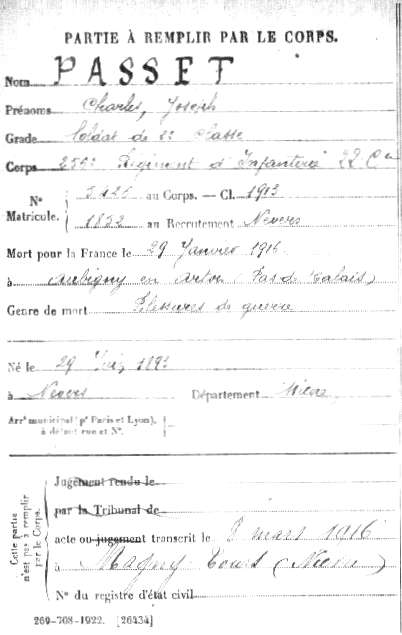 PARTIE À REMPLIR PAR LE CORPS.
Nom PASSET
Prénoms Charles, Joseph
Grade Soldat de 2e Classe
Corps Régiment d'Infanterie 22 Cie
N° au Corps. — Cl. 1913
Matricule. 1832 au Recrutement Nevers
Mort pour la France le 29 Janvier 1916
à Aubigny en Artois (Pas de Calais)
Genre de mort Blessures de guerre
Né le 29
à Nevers Département Nièvre
Arrt municipal (pr Paris et Lyon),
à défaut rue et N°.
Cette partie
n'est pas à remplir
par le Corps.
Jugement rendu le
par le Tribunal de
acte ou jugement transcrit le 8 mars 1916
à Magny Cours (Nièvre)
N° du registre d'état civil
269-708-1922. [26434]